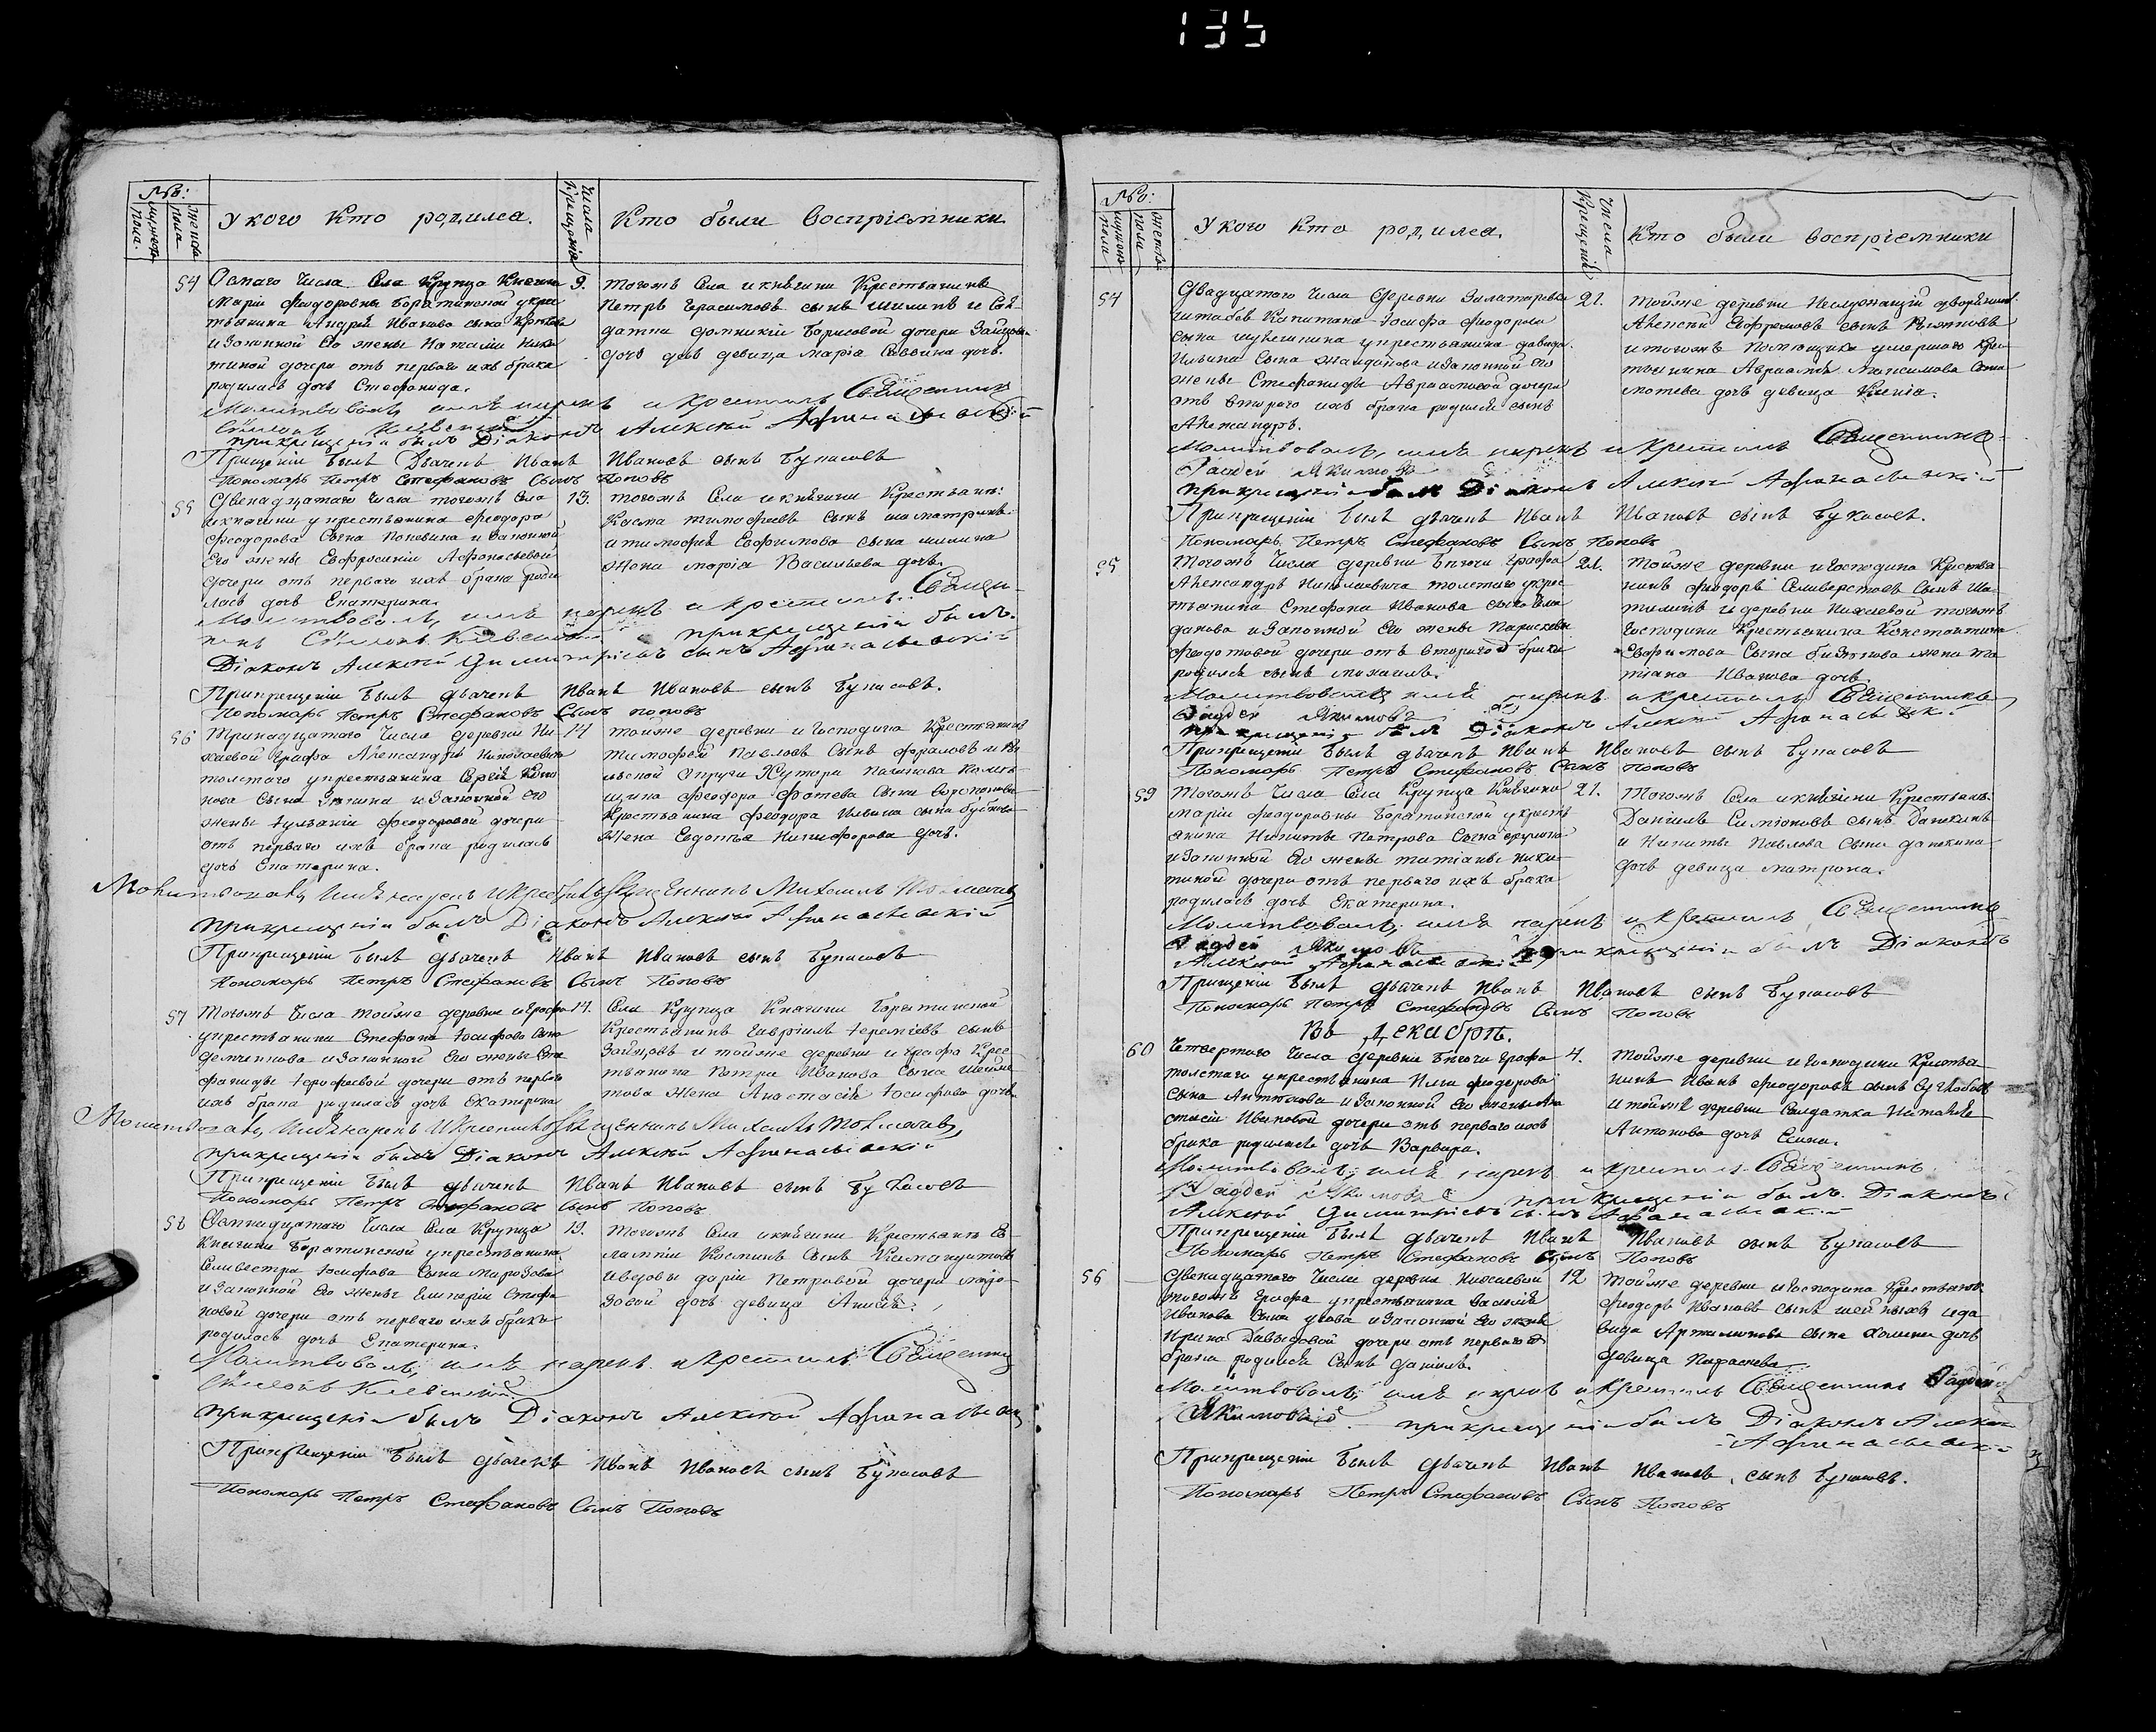 135
№о:
мужеска пола.
женска пола
У кого кто родился.
Числа Крещенія
Кто были воспріемники
54
Осмаго Числа Села Крупца Княгини
Маріи Феодоровны Борятинской у кре
стьянина Андрея Иванова сына
и Законной Его жены Наталіи Ники
тиной дочери отъ перваго ихъ брака
родилась дочь Стефанида.
9.
тогожъ Села и княгини Крестьянинъ
Петръ Герасимовъ сынъ и Сол
датки Домникіи Борисовой дочери
дочь девица Марія Саввина дочь.
Молитвовалъ, имя нарекъ и крестилъ Священникъ
Сѵмеонъ
при крещеніи былъ Діаконъ Алексій Афанасьевскій
При крещеніи былъ Дьячекъ Иванъ Ивановъ сынъ Букасовъ
Пономарь Петръ Стефановъ Сынъ Поповъ
55
Двенадцатаго числа тогожъ Села
и княгини у крестьянина Феодора
Феодорова Сына и Законной
Его жены Евфросиніи Афонасьевой
дочери отъ перваго ихъ брака роди
лась дочь Екатерина.
13.
тогожъ Села и княгини Крестьян:
Косма тимофеевъ сынъ
и тимофея Евфимова сына
жена марія Васильева дочь.
Молитвовалъ, имя нарекъ и крестилъ Священ
никъ Сѵмеонъ при крещеніи былъ
Діаконъ Алексій Димитріевъ сынъ Афанасьевскій
При крещеніи былъ дьячекъ Иванъ Ивановъ сынъ Букасовъ.
Пономарь Петръ Стефановъ Сынъ поповъ
56
Тринадцатаго Числа деревни Ни
хаевой Графа Александра Николаевича
толстаго у крестьянина Сергея
Сына и Законной его
жены Іуліаніи Феодоровой дочери
отъ перваго ихъ брака родилась
дочь Екатерина.
14
тойже деревни и Господина Крестьянинъ
тимофей Павловъ Сынъ и
округи Хутора помѣ
щика Феодора Фотева Сына
Крестьянина Феодора Ильина сына
Жена Евдотья Никифорова дочь.
Молитвовалъ, Имя нарекъ и Крестилъ Священникъ Михаилъ Толмачевъ
при крещеніи былъ Діаконъ Алексій Афанасьевскій
При крещеніи былъ дьячекъ Иванъ Ивановъ сынъ Букасовъ
Пономарь Петръ Стефановъ Сынъ Поповъ
57
Тогожъ Числа тойже деревни и Графа
у крестьянина Стефана Іосифова Сына
и законной Его жены Сте
фаниды Ерофеевой дочери отъ перваго
ихъ брака родилась дочь Екатерина
14.
Села Крупца Княгини Борятинской
Крестьянинъ Гавріилъ Іереміевъ сынъ
Зайцовъ и тойже деревни и Графа Крес
тьянина Петра Иванова Сына
жена Анастасія Іосифова дочь
Молитвовалъ, Имя нарекъ и Крестилъ Священникъ Михаилъ Толмачевъ,
при крещеніи былъ Діаконъ Алексій Афанасьевскій
При крещеніи былъ дьячекъ Иванъ Ивановъ сынъ Букасовъ
Пономарь Петръ Стефановъ Сынъ Поповъ
58
Осмнадцатаго Числа Села Крупца
Княгини Борятинской у крестьянина
Селивестра Іосифова Сына Марозова
и Законной Его жены Гликеріи Стефа
новой дочери отъ перваго ихъ брака
родилась дочь Екатерина.
19.
тогожъ Села и княгини Крестьян: Ев
лампій Косминъ Сынъ
и вдовы даріи Петровой дочери моро
зовой дочь девица Анисія.
Молитвовалъ, имя нарекъ и крестилъ Священникъ
Сѵмеонъ
при крещеніи былъ Діаконъ Алексій Афанасьевскій
При крещеніи былъ дьячекъ Иванъ Ивановъ сынъ Букасовъ
Пономарь Петръ Стефановъ Сынъ Поповъ
№о:
мужеск пола
женск пола
У кого кто родился.
Числа Крещенія
Кто были воспріемники
54
Двадцатаго Числа Деревни
штабсъ Капитана Іосифа Феодорова
сына у крестьянина давида
Ильина Сына и Законной его
жены Стефаниды Авраамовой дочери
отъ втораго ихъ брака родился сынъ
Александръ.
21.
тойже деревни
Алексій Евфремовъ сынъ
и тогожъ помещика умершаго Крес
тьянина Авраама Максимова Сына
дочь девица Ксенія.
Молитвовалъ, имя нарекъ и крестилъ Священникъ
Фаддей Якимовъ
при крещеніи былъ Діаконъ Алексій Афанасьевскій
При крещеніи былъ дьячекъ Иванъ Ивановъ сынъ Букасовъ.
Пономарь Петръ Стефановъ Сынъ Поповъ
55
Тогожъ Числа деревни Бегочи Графа
Александра Николаевича толстаго у крес
тьянина Стефана Иванова сына
и Законной Его жены Параскевы
Федотовой дочери отъ втораго брака
родился сынъ михаилъ.
21.
тойже деревни и Господина Крестья
нинъ Феодоръ Селиверстовъ Сынъ
и деревни Нихаевой тогожъ
Господина Крестьянина Константина
Евфимова Сына жена та
тіана Иванова дочь.
Молитвовалъ имя нарекъ и крестилъ Священникъ
Фаддей Якимовъ
при крещеніи былъ Діаконъ Алексій Афанасьевскій
При крещеніи былъ дьячекъ Иванъ Ивановъ сынъ Букасовъ
Пономарь Петръ Стефановъ Сынъ Поповъ
59
Тогожъ Числа Села Крупца Княгини
маріи Феодоровны Борятинской у крестъ
янина Никиты Петрова Сына
и Законной Его жены татіаны ники
тиной дочери отъ перваго ихъ брака
родилась дочь Екатерина.
21.
Тогожъ Села и княгини Крестьян:
Даніилъ Симіоновъ сынъ
и Никиты Павлова Сына
дочь девица матрона.
Молитвовалъ, имя нарекъ и крестилъ Священникъ
Фаддей Якимовъ при крещеніи былъ Діаконъ
Алексій Афанасьевскій
При крещеніи былъ дьячекъ Иванъ Ивановъ сынъ Букасовъ
Пономарь Петръ Стефановъ Сынъ Поповъ
Въ Декабрѣ.
60
Четвертаго Числа деревни Бегочи Графа
толстаго у крестьянина Ильи Феодорова
сына и Законной Его жены Ана
стасіи Ивановой дочери отъ перваго ихъ
брака родилась дочь Варвара.
4.
тойже деревни и Господина Крестья
нинъ Иванъ Феодоровъ сынъ
и тойже деревни Солдатка Наталія
Антонова дочь
Молитвовалъ, имя нарекъ и крестилъ Священникъ
Фаддей Якимовъ при крещеніи былъ Діаконъ
Алексій Димитріевъ сынъ Афанасьевскій
При крещеніи былъ дьячекъ Иванъ Ивановъ сынъ Букасовъ
Пономарь Петръ Стефановъ Сынъ Поповъ
56
Двенадцатаго Числа деревни Нихаевой
тогожъ Графа у крестьянина Василія
Иванова Сына и Законной Его жены
Ирины Давыдовой дочери отъ перваго
брака родился Сынъ даніилъ.
12
тойже деревни и Господина Крестьян:
Феодоръ Ивановъ сынъ и да
вида сына дочь
девица Параскева.
Молитвовалъ, имя нарекъ и крестилъ Священникъ Фаддей
Якимовъ при крещеніи былъ Діаконъ Алексій
Афанасьевскій
При крещеніи былъ дьячекъ Иванъ Ивановъ сынъ Букасовъ.
Пономарь Петръ Стефановъ Сынъ Поповъ